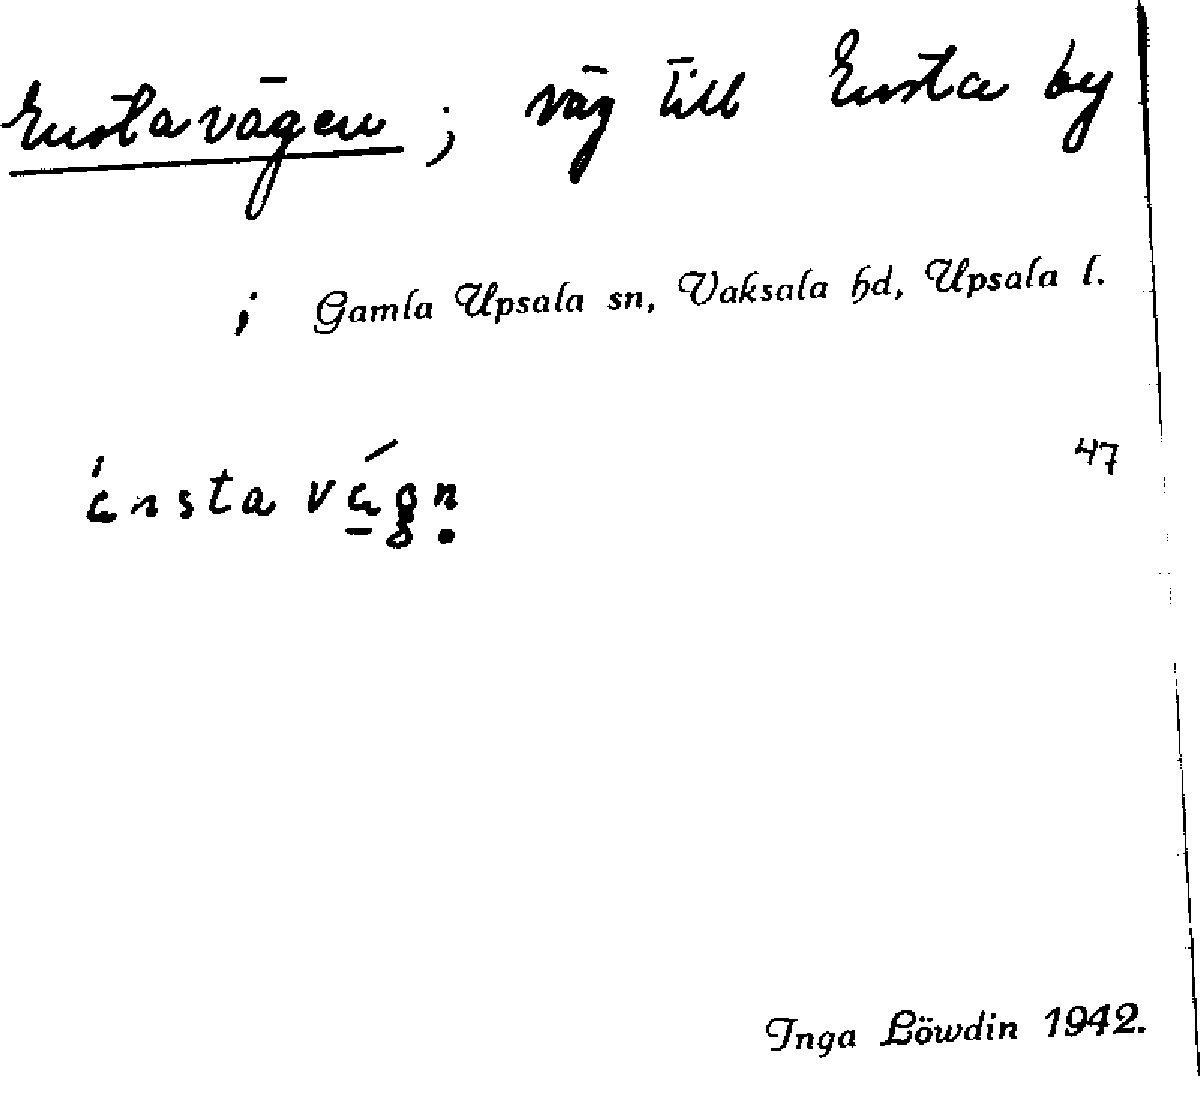 Enstavägen ; väg till Ensta by
; Gamla Upsala sn, Vaksala hd, Upsala l.
47
Inga Löwdin 1942.